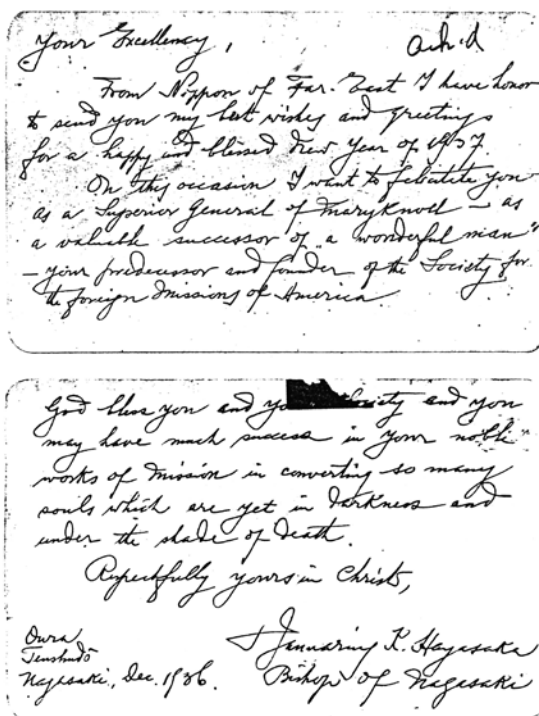 Your Excellency, ack'd
From Nippon of Far-East I have honor
to send you my best wishes and greetings
for a happy and blessed New Year of 1937.
On this occasion I want to felicitate you
as a Superior General of Maryknoll – as
a valuable successor of "a wonderful man"
– your predecessor and founder of the Society for
the foreign Missions of America
God bless you and Society and you
may have much success in your noble
works of Mission in converting so many
souls which are yet in darkness and
under the shade of death.
Respectfully yours in Christ,
Oura
Tenshudō
Nagasaki, Dec. 1936.
† Januarius K. Hayasaka
Bishop of Nagasaki